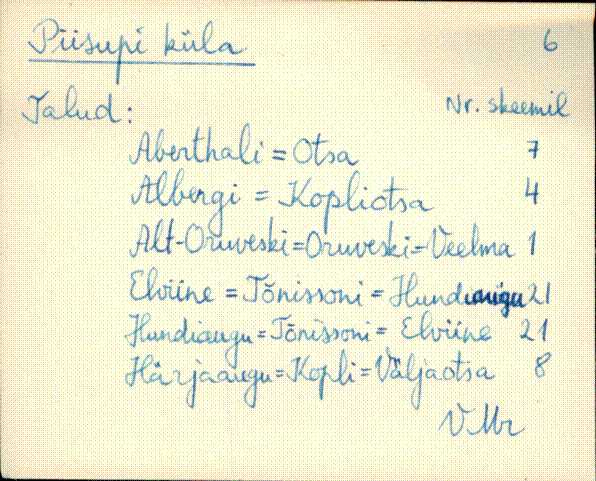 Piisupi küla 6
Talud: Nr. skeemil
Aberthali = Otsa 7
Albergi = Kopliotsa 4
Alt-Oruveski=Oruveski=Veelma 1
Elviine = Tõnissoni = Hundiaugu 21
Hundiaugu=Tõnissoni= Elviine 21
Härjaaugu=Kopli=Väljaotsa 8